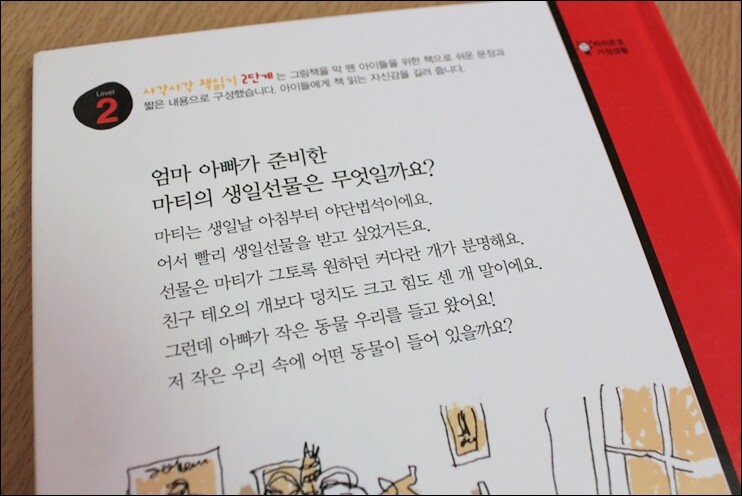 Level
2
사각사각 책읽기 2단계는 그림책을 막 뗀 아이들을 위한 책으로 쉬운 문장과
짧은 내용으로 구성했습니다. 아이들에게 책 읽는 자신감을 길러 줍니다.
엄마 아빠가 준비한
마티의 생일선물은 무엇일까요?
마티는 생일날 아침부터 야단법석이에요.
어서 빨리 생일선물을 받고 싶었거든요.
선물은 마티가 그토록 원하던 커다란 개가 분명해요.
친구 테오의 개보다 덩치도 크고 힘도 센 개 말이에요.
그런데 아빠가 작은 동물 우리를 들고 왔어요!
저 작은 우리 속에 어떤 동물이 들어 있을까요?